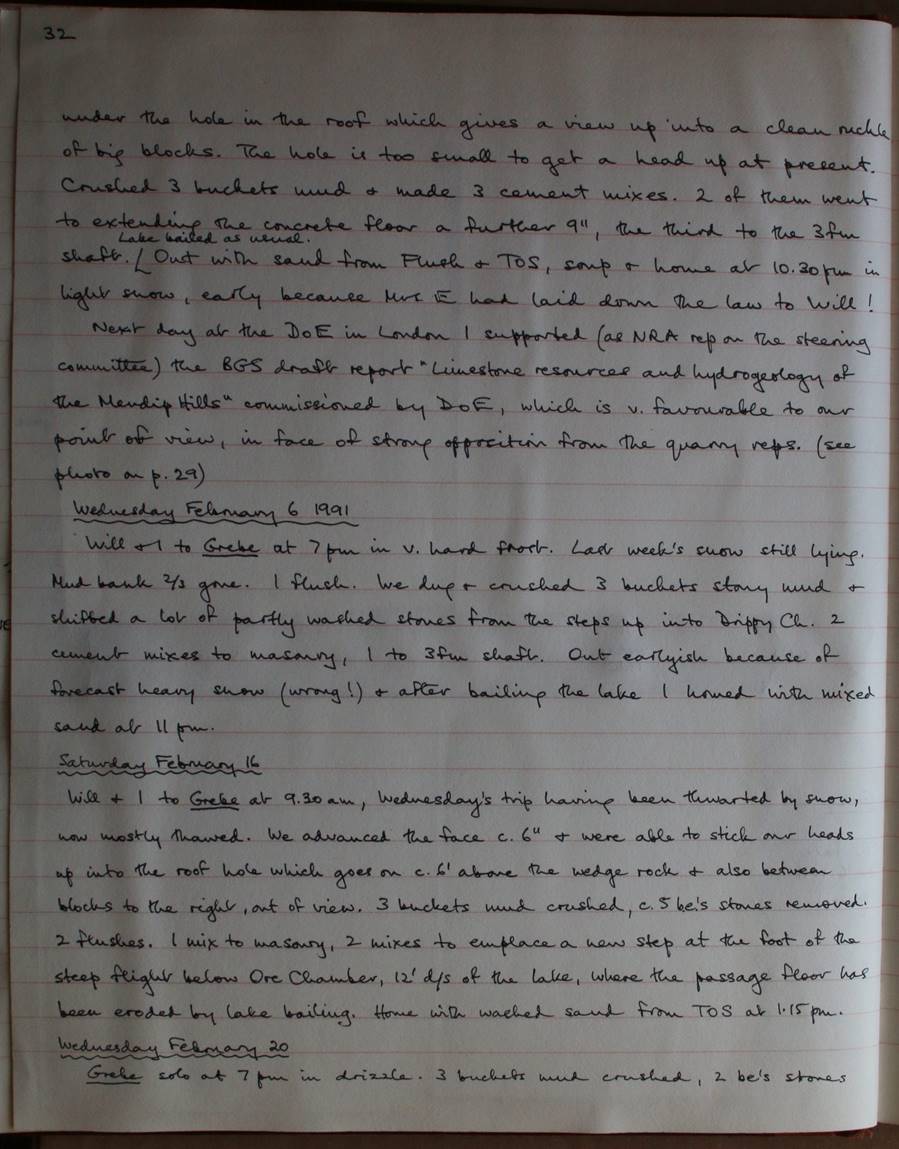 32
under the hole in the roof which gives a view up into a clean ruckle
of big blocks. The hole is too small to get a head up at present.
Crushed 3 buckets mud & made 3 cement mixes. 2 of them went
to extending the concrete floor a further 9", the third to the 3fm
Lake bailed as usual.
shaft. Out with sand from Flush & TOS, soup & home at 10.30 pm in
light snow, early because Mrs E had laid down the law to Will!
Next day at the DoE in London I supported (as NRA rep on the steering
committee) the BGS draft report "Limestone resources and hydrogeology of
the Mendip Hills" commissioned by DoE, which is v. favourable to our
point of view, in face of strong opposition from the quarry reps. (see
photo on p. 29)
Wednesday February 6 1991
Will & I to Grebe at 7 pm in v. hard frost. Last week's snow still lying.
Mud bank 2/3 gone. 1 flush. We dug & crushed 3 buckets stony mud &
shifted a lot of partly washed stones from the steps up into Drippy Ch. 2
cement mixes to masonry, 1 to 3fm shaft. Out earlyish because of
forecast heavy snow (wrong!) & after bailing the lake I homed with mixed
sand at 11 pm.
Saturday February 16
Will & I to Grebe at 9.30 am, Wednesday's trip having been thwarted by snow,
now mostly thawed. We advanced the face c. 6" & were able to stick our heads
up into the roof hole which goes on c. 6' above the wedge rock & also between
blocks to the right, out of view. 3 buckets mud crushed, c. 5 be's stones removed.
2 flushes. 1 mix to masonry, 2 mixes to emplace a new step at the foot of the
steep flight below Ore Chamber, 12' d/s of the lake, where the passage floor has
been eroded by lake bailing. Home with washed sand from TOS at 1.15 pm.
Wednesday February 20
Grebe solo at 7 pm in drizzle. 3 buckets mud crushed, 2 be's stones